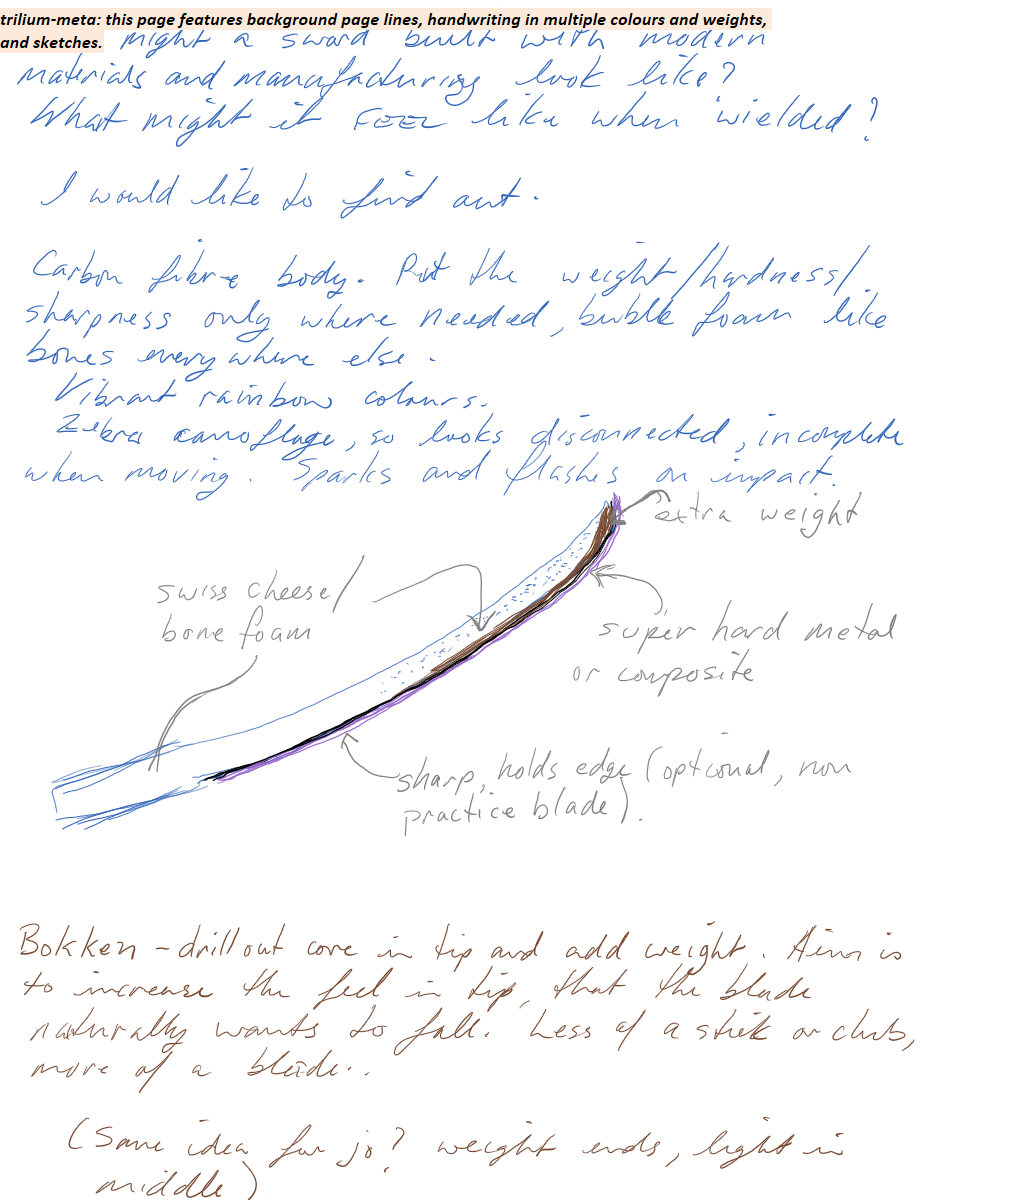 trilium-meta: this page features background page lines, handwriting in multiple colours and weights,
and sketches. might a sword built with modern
materials and manufacturing look like?
What might it FEEL like when wielded?
I would like to find out.
Carbon fibre body. Put the weight/hardness/
sharpness only where needed, bubble foam like
bones everywhere else.
Vibrant rainbow colours.
Zebra camoflage, so looks disconnected, incomplete
when moving. Sparks and flashes on impact.
extra weight
swiss cheese/
bone foam
super hard metal
or composite
sharp, holds edge (optional, non
practice blade).
Bokken - drill out core in tip and add weight. Aim is
to increase the feel in tip, that the blade
naturally wants to fall. Less of a stick or club,
more of a blade..
(Same idea for jo? weight ends, light in
middle)